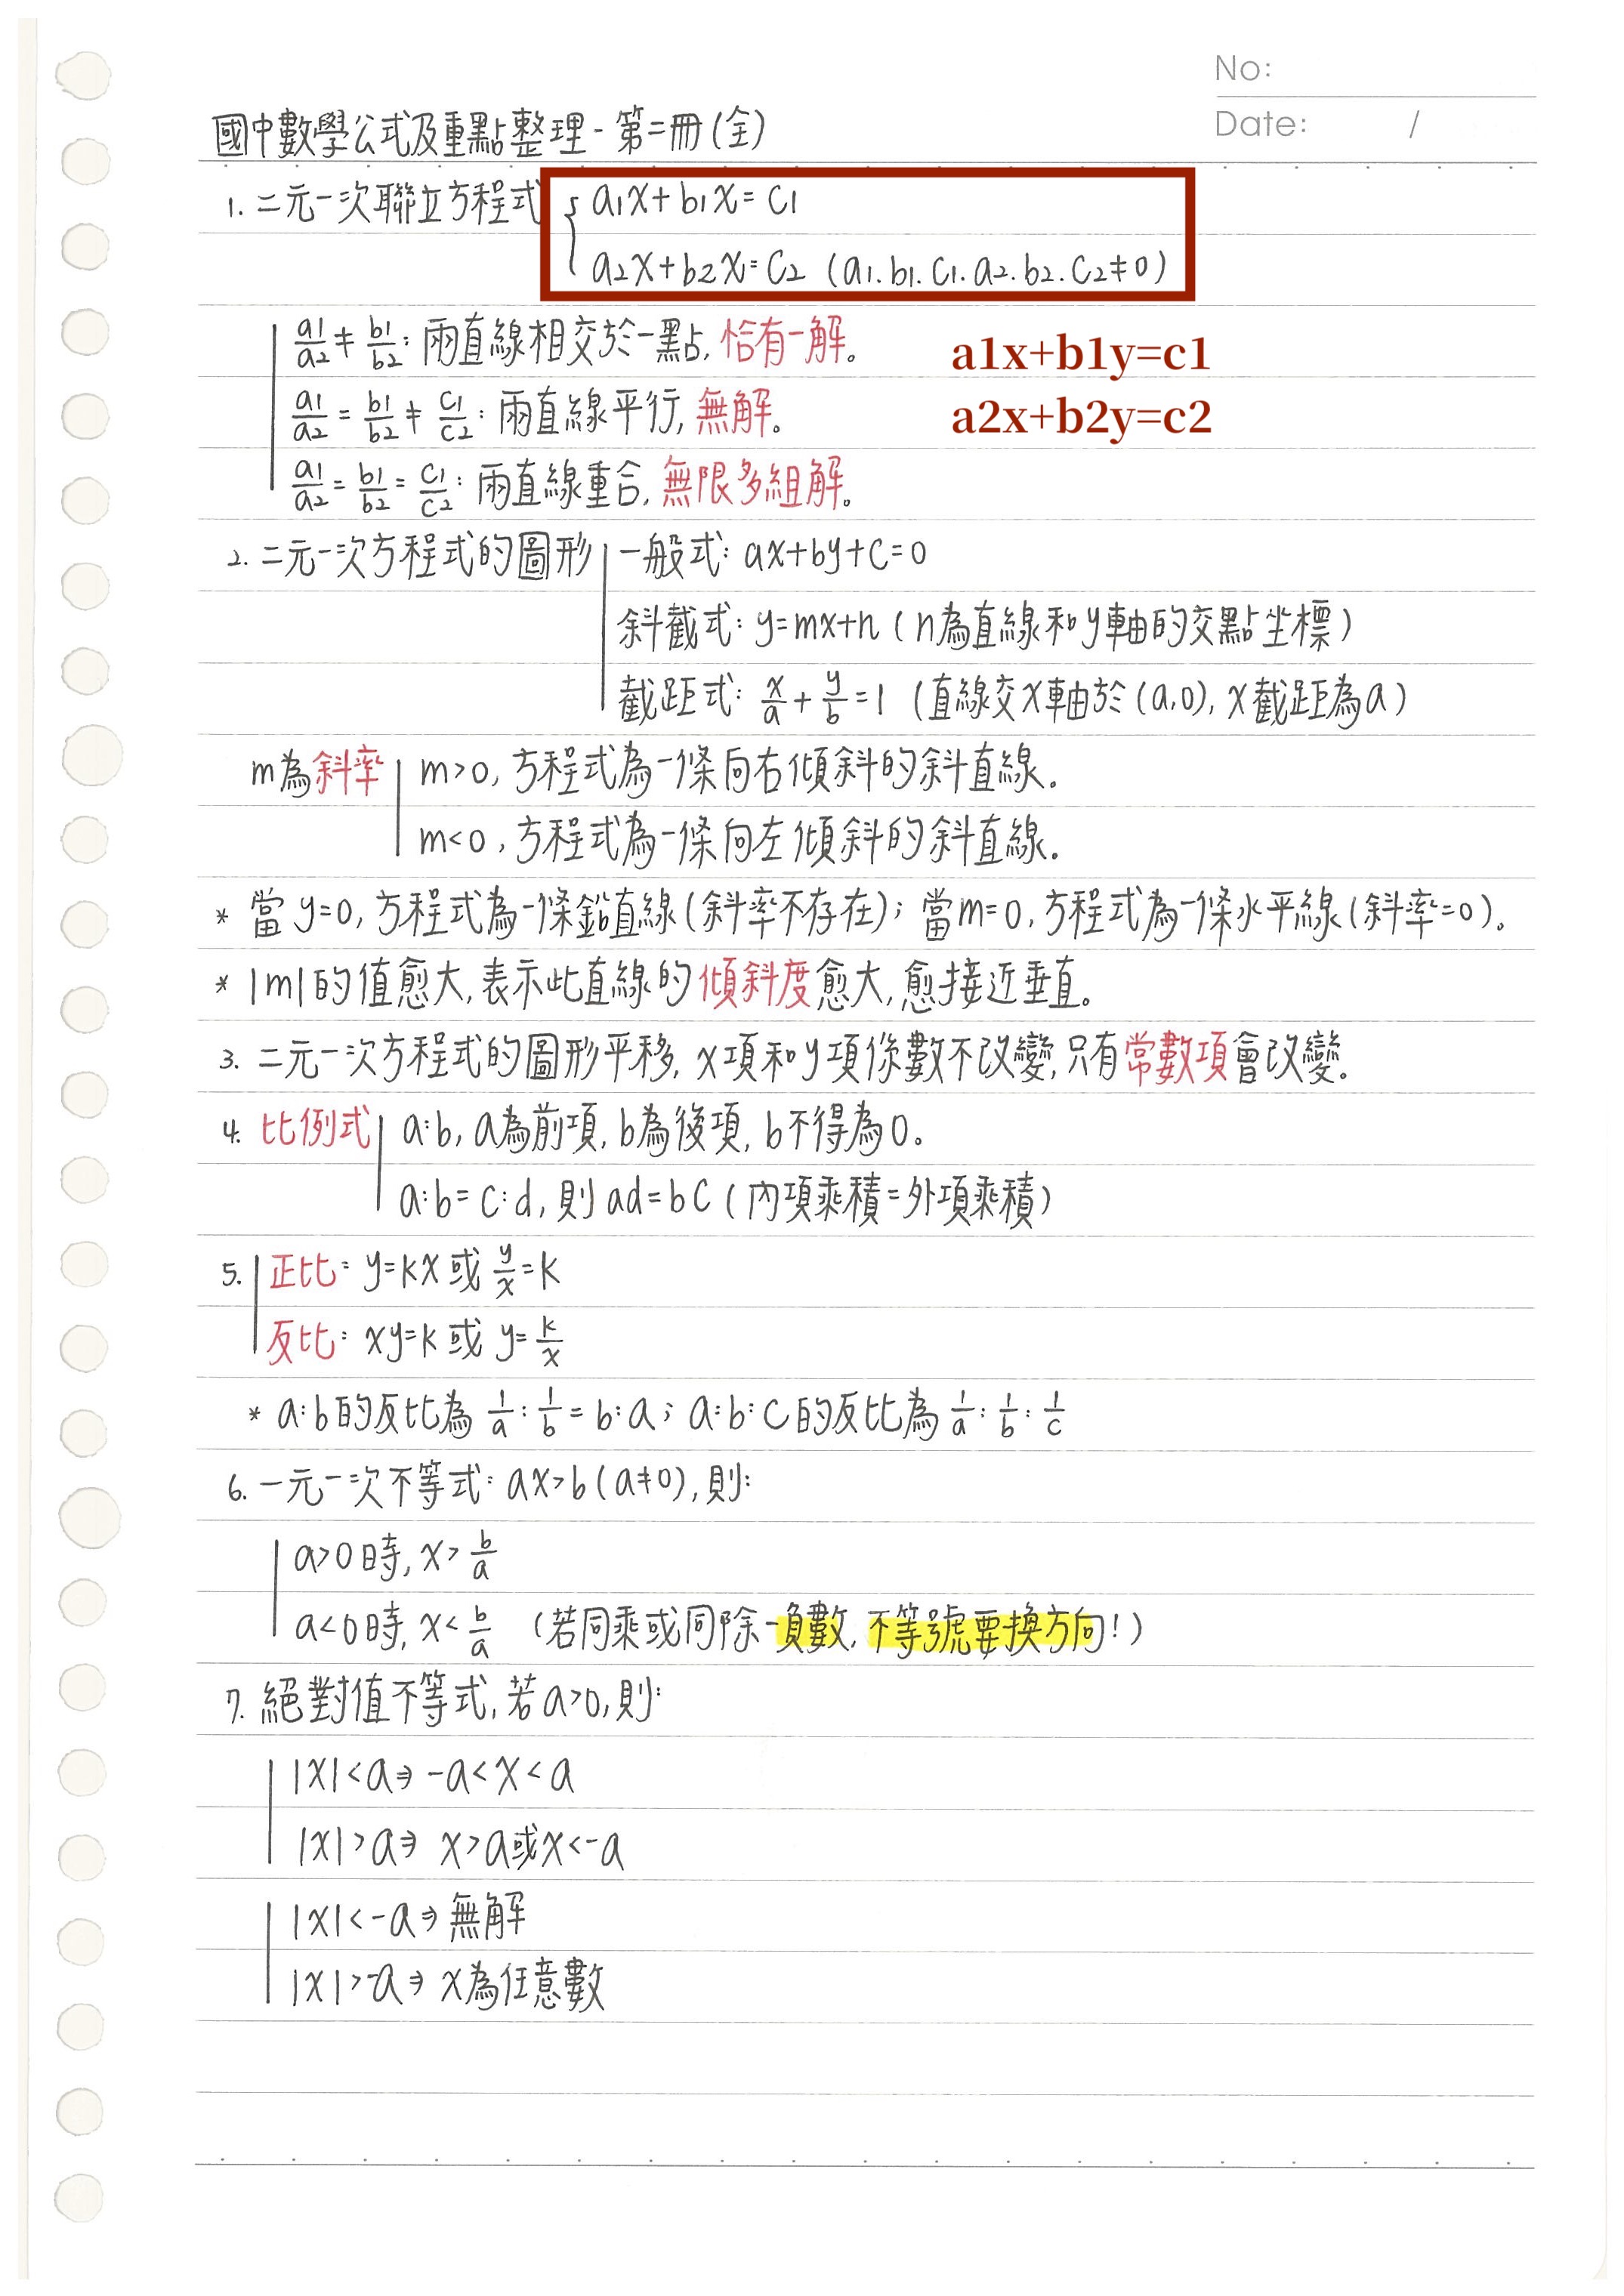 No:
Date: /
國中數學公式及重點整理-第二冊(全)
1. 二元一次聯立方程式 { a₁x+b₁x=c₁
a₂x+b₂x=c₂ (a₁.b₁.c₁.a₂.b₂.c₂≠0)
a₁/a₂ ≠ b₁/b₂: 兩直線相交於一點, 恰有一解。
a1x+b1y=c1
a₁/a₂ = b₁/b₂ ≠ c₁/c₂: 兩直線平行, 無解。
a2x+b2y=c2
a₁/a₂ = b₁/b₂ = c₁/c₂: 兩直線重合, 無限多組解。
2. 二元一次方程式的圖形 一般式: ax+by+c=0
斜截式: y=mx+n (n為直線和y軸的交點坐標)
截距式: x/a + y/b = 1 (直線交x軸於(a,0), x截距為a)
m為斜率 m>0, 方程式為一條向右傾斜的斜直線.
m<0, 方程式為一條向左傾斜的斜直線.
* 當y=0, 方程式為一條鉛直線(斜率不存在); 當m=0, 方程式為一條水平線(斜率=0)。
* |m|的值愈大, 表示此直線的傾斜度愈大, 愈接近垂直。
3. 二元一次方程式的圖形平移, x項和y項係數不改變, 只有常數項會改變。
4. 比例式 a:b, a為前項, b為後項, b不得為0。
a:b=c:d, 則ad=bc (內項乘積=外項乘積)
5. 正比: y=kx或 y/x=k
反比: xy=k或 y=k/x
* a:b的反比為 1/a:1/b=b:a; a:b:c的反比為 1/a:1/b:1/c
6. 一元一次不等式: ax>b(a≠0), 則:
a>0時, x>b/a
a<0時, x<b/a (若同乘或同除一負數, 不等號要換方向!)
7. 絕對值不等式, 若a>0, 則:
|x|<a⇒ -a<x<a
|x|>a⇒ x>a或x<-a
|x|<-a⇒ 無解
|x|>-a⇒ x為任意數